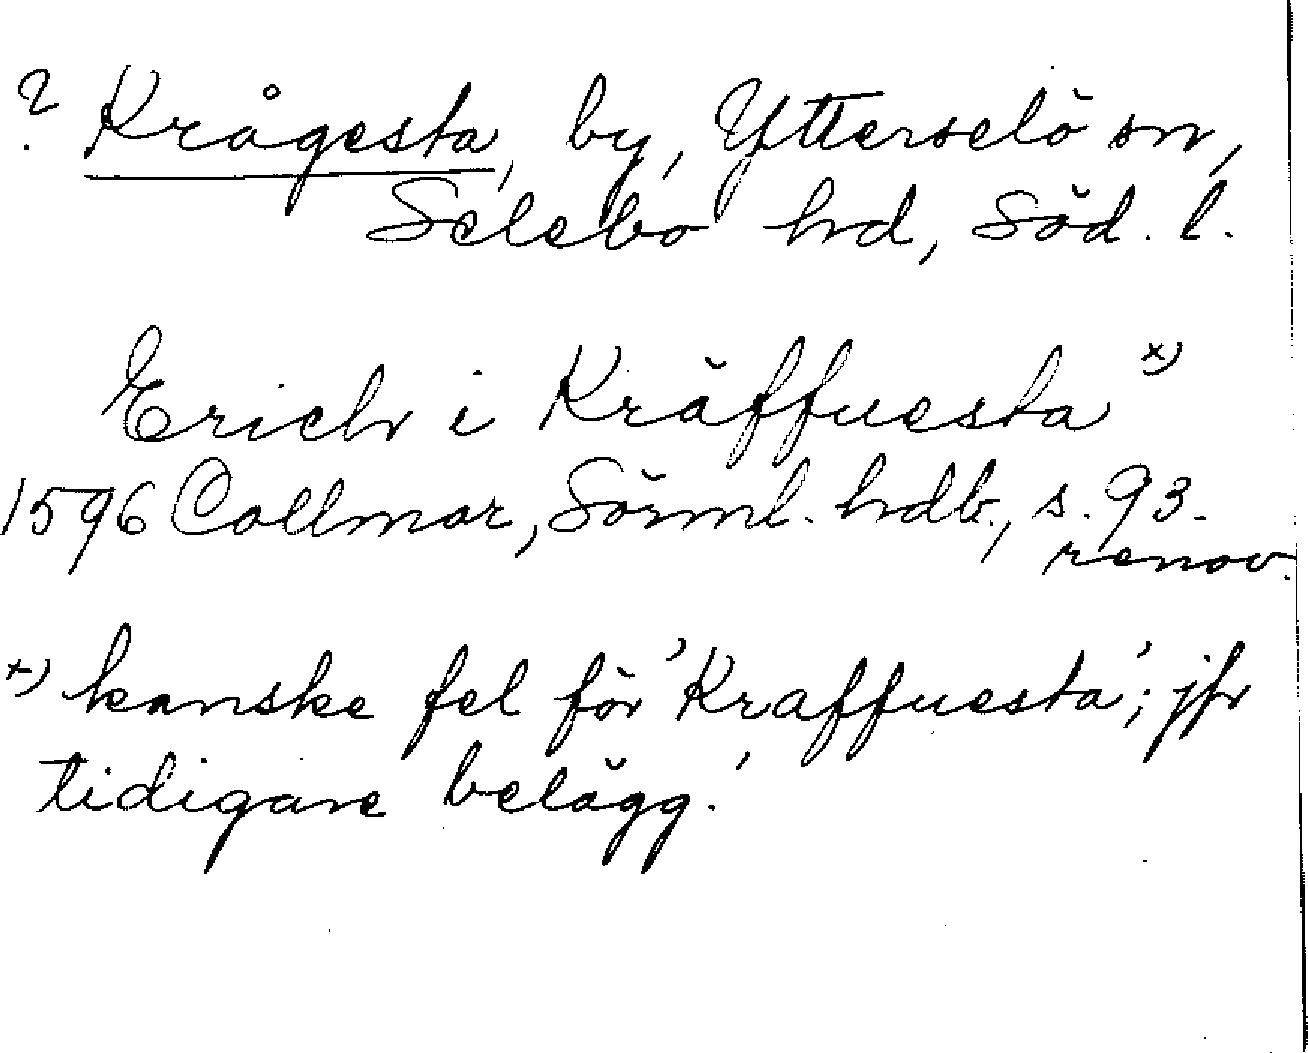 ? Krågesta, by, Ytterselö sn,
Selebo hd, Söd. l.
Erich i Kräffuesta x)
1596 Collmar, Sörml. hdb., s. 93.
renov.
x) kanske fel för 'Kraffuesta'; jfr
tidigare belägg.